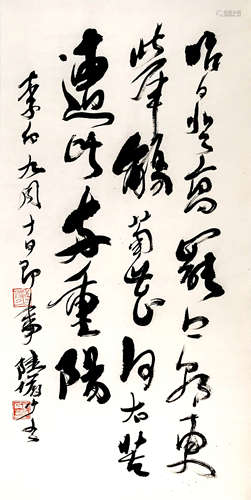 昨日登高罷今朝更
舉觴菊花何太苦
遭此两重陽
李白九月十日即事 陸儼少書